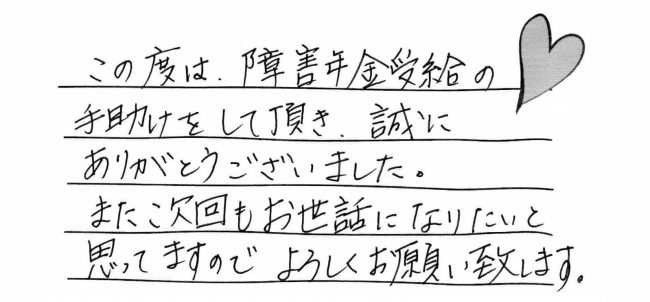 この度は、障害年金受給の
手助けをして頂き、誠に
ありがとうございました。
またご次回もお世話になりたいと
思ってますのでよろしくお願い致します。